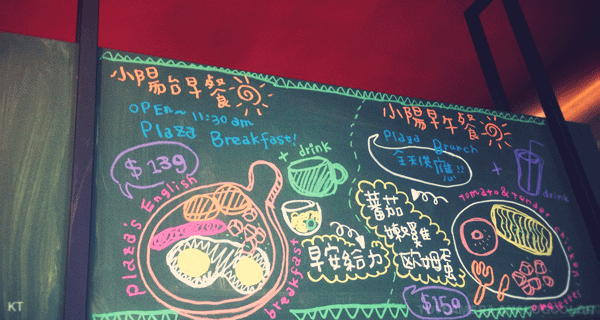 小陽台早餐
OPEn~11:30am
Plaza Breakfast!
$139
+ drink
Plaza's English
breakfast
早安給力
小陽早午餐
Plaza Brunch
天天供應!!
+ drink
蕃茄
嫩雞
歐姆蛋
tomato & tender chicken
omelette
$159
KT